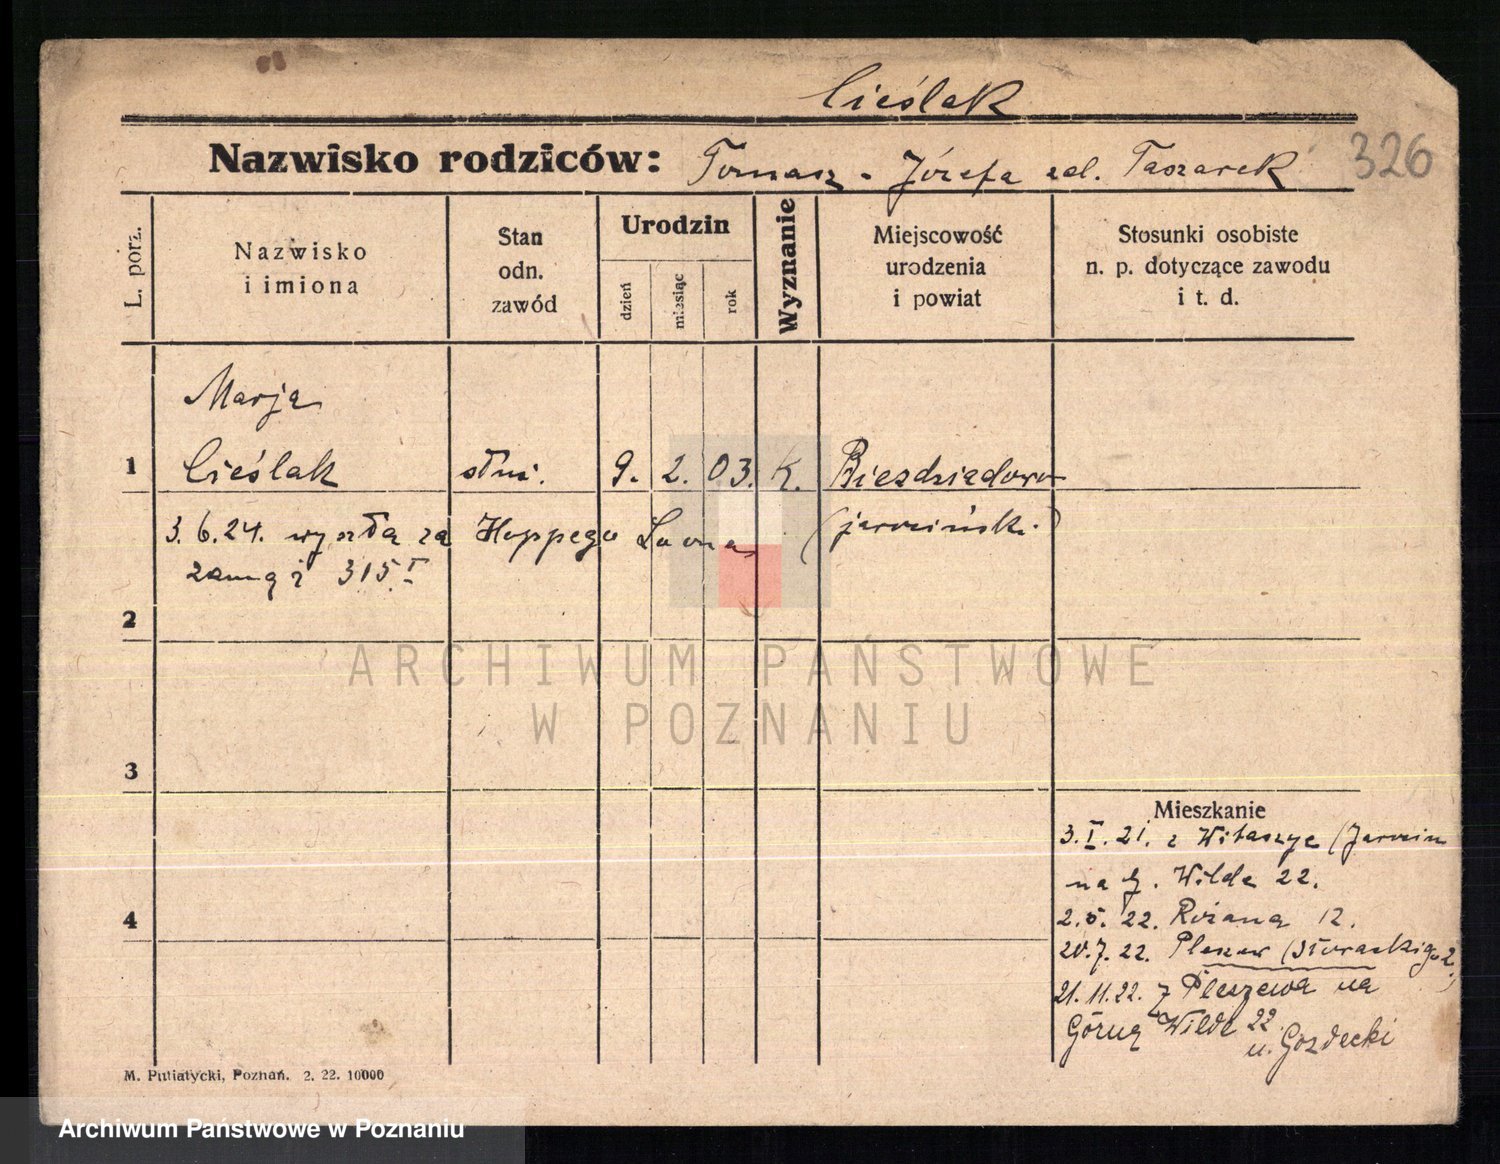 Cieślak
Nazwisko rodziców: Tomasz - Józefa zd. Taszarek
326
L. porz.
Nazwisko
i imiona
Stan
odn.
zawód
Urodzin
dzień
miesiąc
rok
Wyznanie
Miejscowość
urodzenia
i powiat
Stosunki osobiste
n. p. dotyczące zawodu
i t. d.
Marja
1 Cieślak służ. 9. 2. 03. K. Biezdziadowo
3. 6. 24. wyszła za Hoppego Leona (jarociński)
zamąż 315 I
2
ARCHIWUM PAŃSTWOWE
W POZNANIU
3
Mieszkanie
3. I. 21. z Witaszyc (Jarocin
na G. Wilda 22.
4
2. 5. 22. Różana 12.
20. 7. 22. Pleszew (Słowackiego 2.)
21. 11. 22. z Pleszewa na
Górną Wildę 22
u. Gozdecki
M. Putiatycki, Poznań. 2. 22. 10000
Archiwum Państwowe w Poznaniu